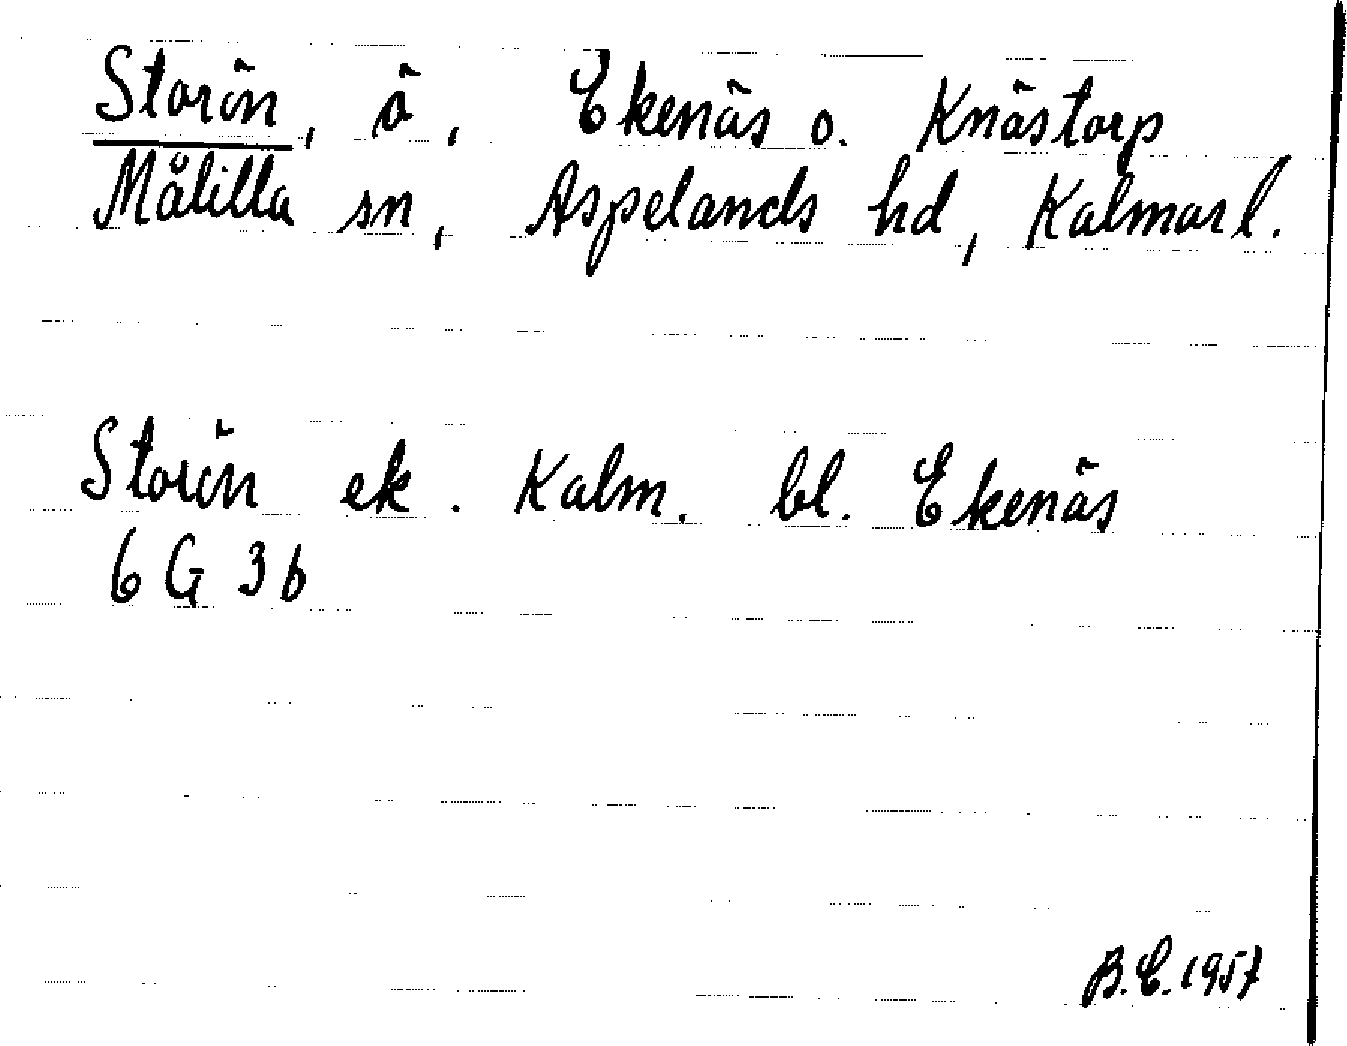 Storön, ö, Ekenäs o. Knästorp
Målilla sn, Aspelands hd, Kalmar l.
Storön ek. Kalm. bl. Ekenäs
6 G 3 b
B.E. 1957